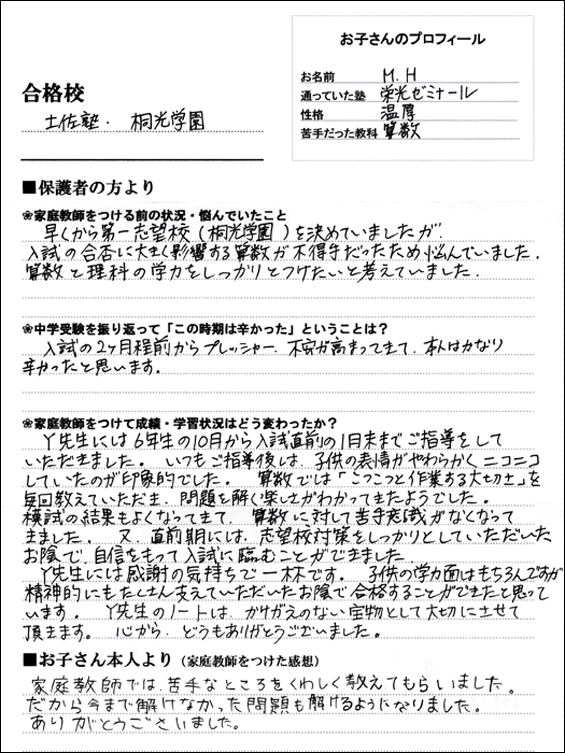 お子さんのプロフィール
お名前 M.H
通っていた塾 栄光ゼミナール
性格 温厚
苦手だった教科 算数
合格校
土佐塾・桐光学園
■保護者の方より
❀家庭教師をつける前の状況・悩んでいたこと
早くから第一志望校(桐光学園)を決めていましたが、
入試の合否に大きく影響する算数が不得手だったため悩んでいました。
算数と理科の学力をしっかりとつけたいと考えていました。
❀中学受験を振り返って「この時期は辛かった」ということは？
入試の2ヶ月程前からプレッシャー、不安が高まってきて、本人はかなり
辛かったと思います。
❀家庭教師をつけて成績・学習状況はどう変わったか？
Y先生には6年生の10月から入試直前の1月末までご指導をして
いただきました。いつもご指導後は、子供の表情がやわらかくニコニコ
していたのが印象的でした。算数では「こつこつと作業する大切さ」を
毎回教えていただき、問題を解く楽しさがわかってきたようでした。
模試の結果もよくなってきて、算数に対して苦手意識がなくなって
きました。又、直前期には、志望校対策をしっかりとしていただいた
お陰で、自信をもって入試に臨むことができました。
Y先生には感謝の気持ちで一杯です。子供の学力面はもちろんですが
精神的にもたくさん支えていただいたお陰で合格することができたと思って
います。Y先生のノートは、かけがえのない宝物として大切にさせて
頂きます。心から、どうもありがとうございました。
■お子さん本人より（家庭教師をつけた感想）
家庭教師では、苦手なところをくわしく教えてもらいました。
だから今まで解けなかった問題も解けるようになりました。
ありがとうございました。